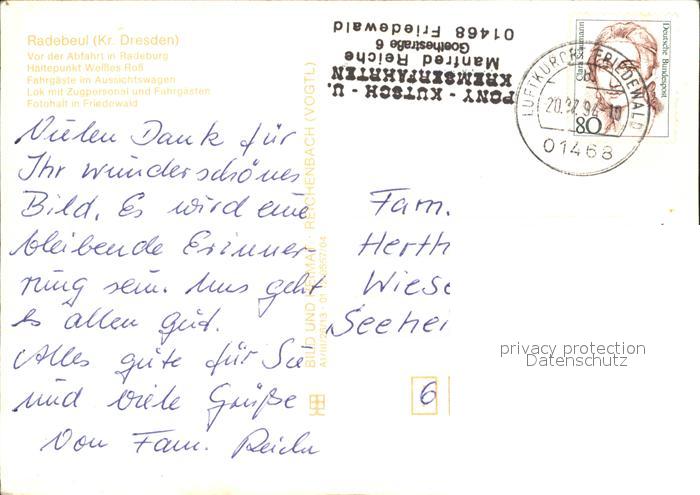 Radebeul (Kr. Dresden)
Vor der Abfahrt in Radeburg
Haltepunkt Weißes Roß
Fahrgäste im Aussichtswagen
Lok mit Zugpersonal und Fahrgästen
Fotohalt in Friedewald
PONY - KUTSCH - U.
KREMSERFAHRTEN
Manfred Reiche
Goethestraße 6
01468 Friedewald
Deutsche Bundespost
80
LUFTKURORT FRIEDEWALD
01468
Vielen Dank für
Ihr wunderschönes
Bild. Es wird eine
bleibende Erinner-
rung sein. Uns geht
es allen gut.
Alles gute für Sie
und viele Grüße
Von Fam. Reiche
BILD UND HEIMAT REICHENBACH (VOGTL)
Fam.
Herth
Wiese
Seehei
6
privacy protection
Datenschutz